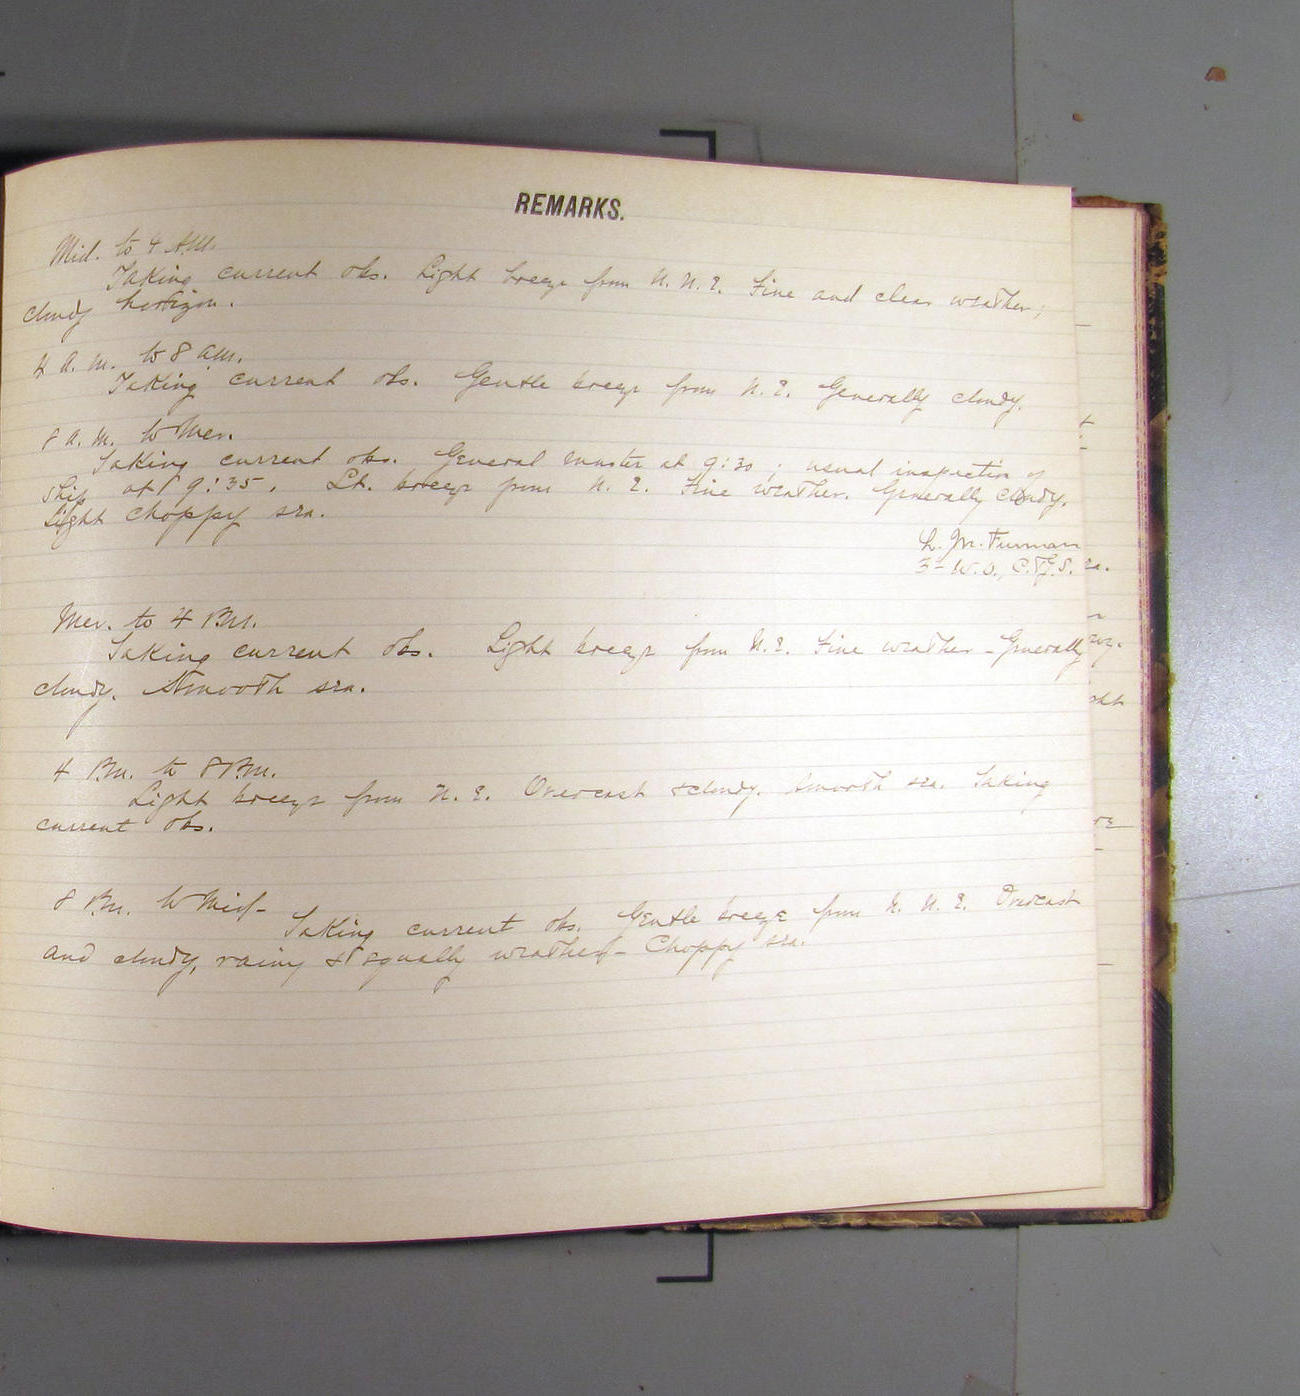 REMARKS.
Mid. to 4 A.M.
Taking current obs. Light breeze from N.N.E. Fine and clear weather,
cloudy horizon.
4 a.m. to 8 a.m.
Taking current obs. Gentle breeze from N.E. Generally cloudy.
8 a.m. to Mer.
Taking current obs. General muster at 9:30; usual inspection of
ship at 9:35. Lt. breeze from N.E. Fine weather. Generally cloudy.
Light choppy sea.
L. M. Furman
3- W.O., C.&G.S.
Mer. to 4 P.M.
Taking current obs. Light breeze from N.E. Fine weather - Generally
cloudy. Smooth sea.
4 P.m. to 8 P.m.
Light breeze from N.E. Overcast & cloudy. Smooth sea. Taking
current obs.
8 P.m. to Mid-
Taking current obs. Gentle breeze from N.N.E. Overcast
and cloudy, rainy & squally weather - Choppy sea.